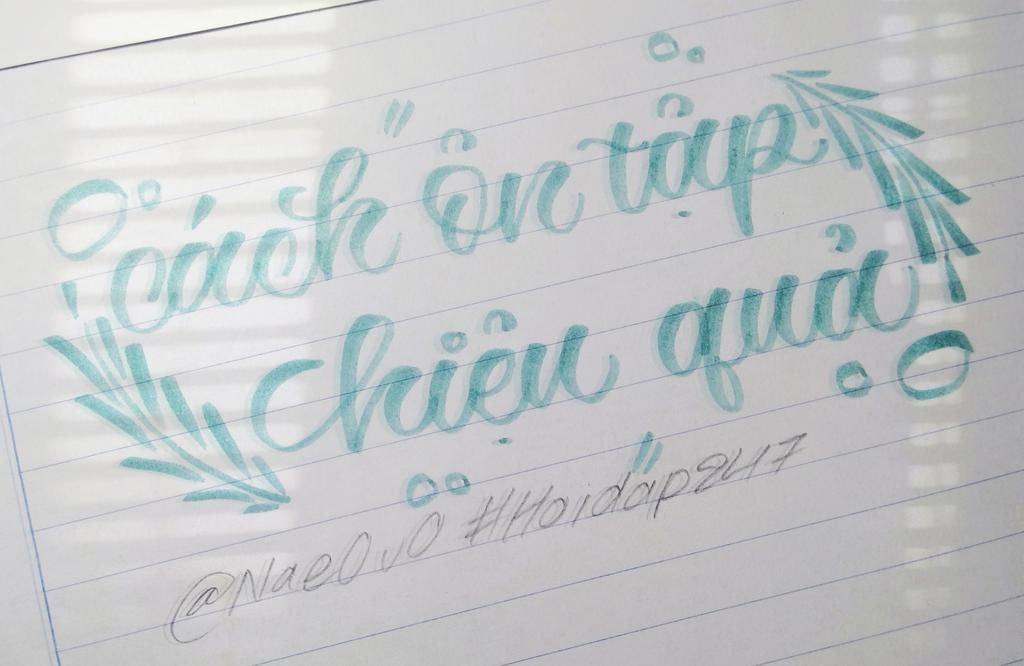 Cách ôn tập
hiệu quả
@NaeOvO #Hoidap247